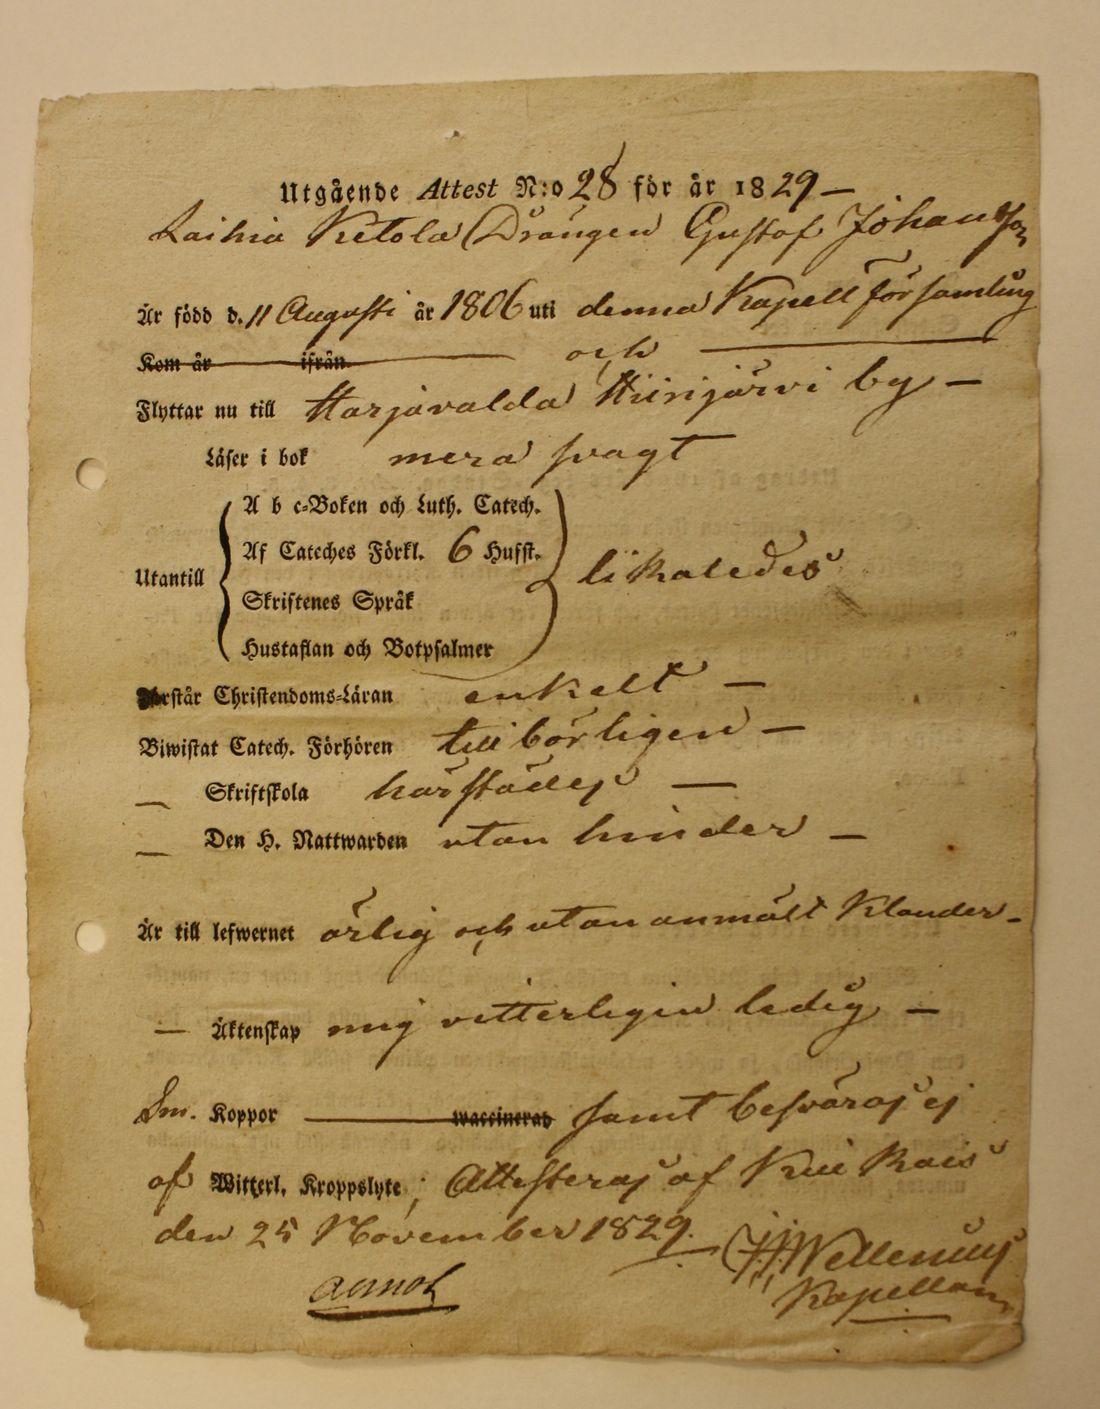 Utgående Attest N:o 28 för år 1829 —
Laihia Ketola Drängen Gustaf Johansson
Är född d. 11 Augusti år 1806 uti denna Kapell församling
Kom år ifrån och
Flyttar nu till Harjavalda Hiirijärvi by —
Läser i bok mera svagt
A b c-Boken och Luth. Catech.
Af Cateches Förkl. 6 Hufst.
Utantill likaledes
Skriftenes Språk
Hustaflan och Botpsalmer
Förstår Christendoms-Läran enkelt —
Biwistat Catech. Förhören tillbörligen —
— Skriftskola härstädes —
— Den H. Nattwarden utan hinder —
Är till lefwernet ärlig och utan anmält klander —
— Äktenskap mig vitterligen ledig —
Koppor waccinerad samt besväras ej
af Witterl. Kroppslyte; Attesteras af Kiukais
den 25 November 1829.
Kapellan